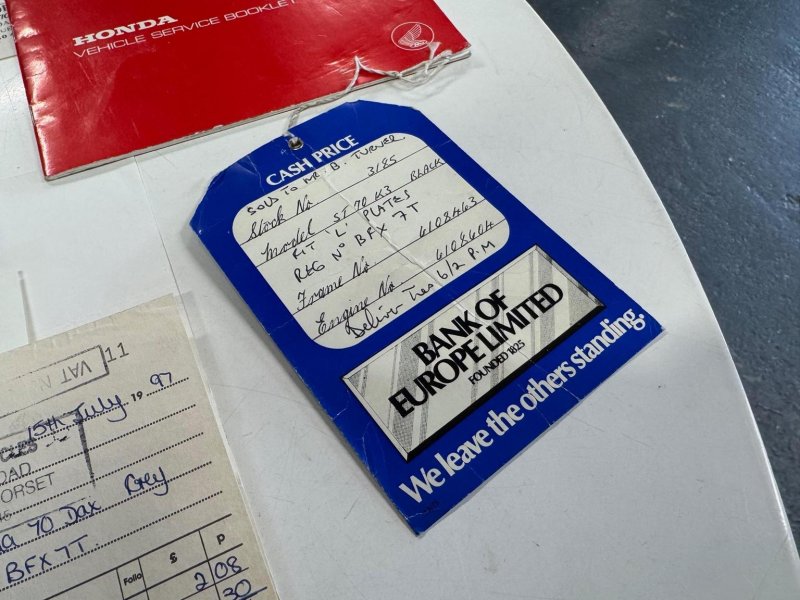 HONDA
VEHICLE SERVICE BOOKLET
CASH PRICE
SOLD TO MR. B. TURNER
Stock No 3185
Model ST 70 K3 BLACK
FIT 'L' PLATES
REG No BFX 7T
Frame No. 6108463
Engine No. 6108604
Deliver Tues 6/2 P.M
BANK OF
EUROPE LIMITED
FOUNDED 1825
We leave the others standing.
VAT N
11
15th July 1997
CLES
OAD
ORSET
70 Dax Grey
BFX 7T.
Folio
$ P
2 08
30